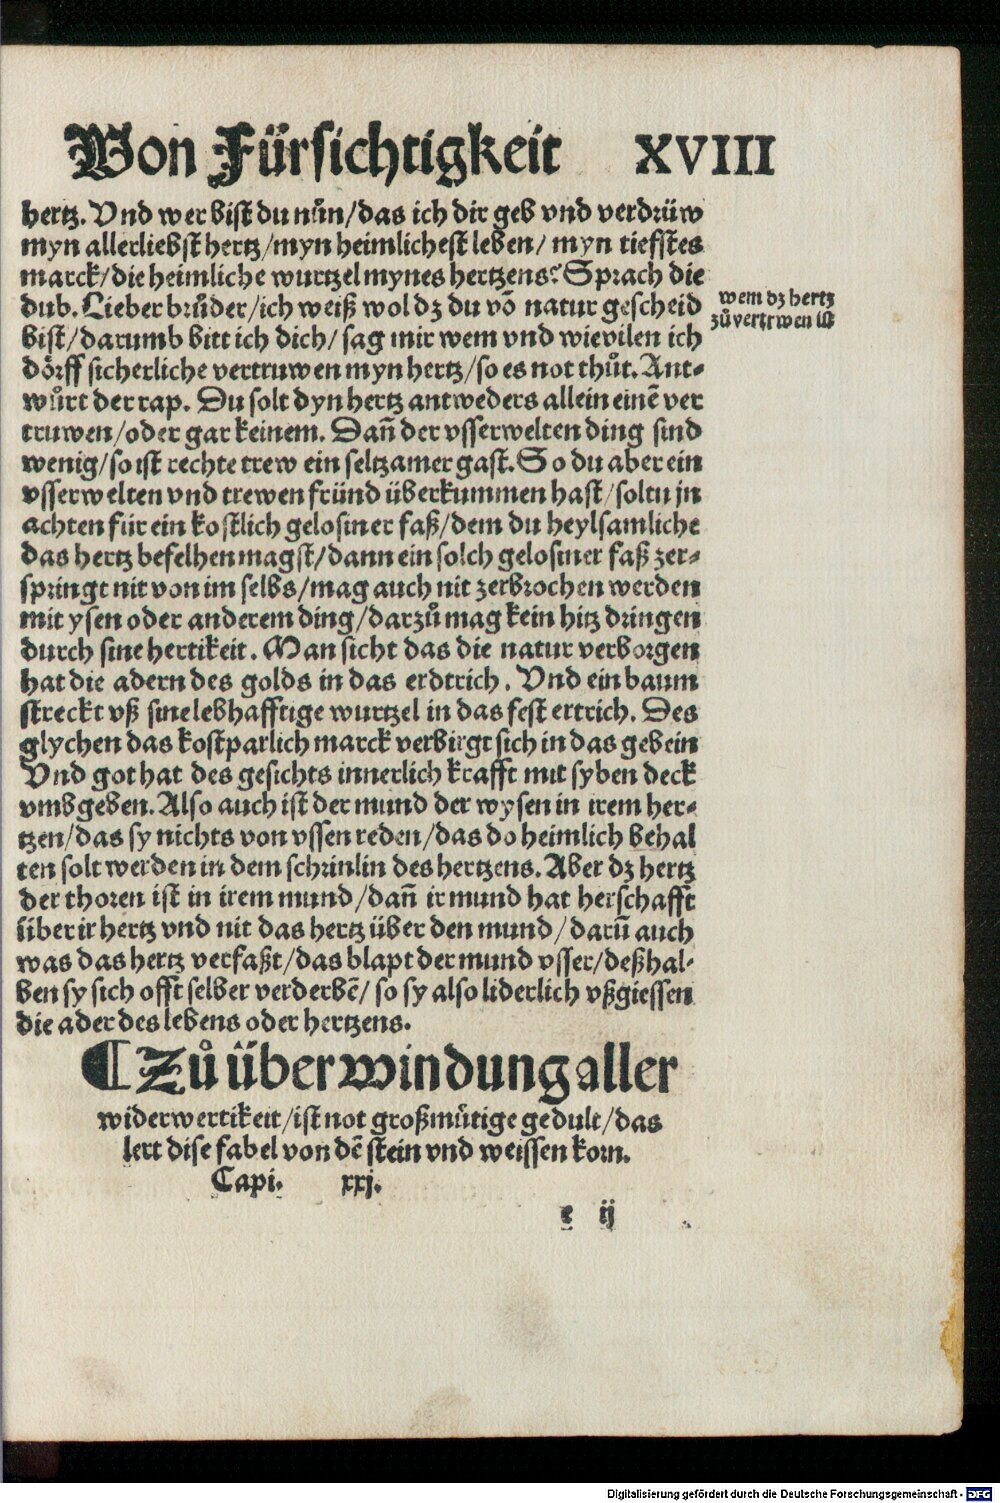 Von Fürsichtigkeit XVIII
hertz. Vnd wer bist du nůn/das ich dir geb vnd verdrüw
myn allerliebst hertz/myn heimlichest leben/ myn tiefstes
marck/die heimliche wurtzel mynes hertzens? Sprach die
dub. Lieber brůder/ich weiß wol dz du võ natur gescheid
bist/darumb bitt ich dich/ sag mir wem vnd wievilen ich
dörff sicherliche vertruwen myn hertz/so es not thůt. Ant⸗
wůrt der rap. Du solt dyn hertz antweders allein einẽ ver
truwen/oder gar keinem. Dañ der vsserwelten ding sind
wenig/so ist rechte trew ein seltzamer gast. So du aber ein
vsserwelten vnd trewen fründ überkummen hast/soltu jn
achten für ein kostlich gelosiner faß/dem du heylsamliche
das hertz befelhen magst/dann ein solch gelosiner faß zer⸗
springt nit von im selbs/mag auch nit zerbrochen werden
mit ysen oder anderem ding/darzů mag kein hitz dringen
durch sine hertikeit. Man sicht das die natur verborgen
hat die adern des golds in das erdtrich. Vnd ein baum
streckt vß sine lebhafftige wurtzel in das fest ertrich. Des
glychen das kostparlich marck verbirgt sich in das gebein
Vnd got hat des gesichts innerlich krafft mit syben deck
vmbgeben. Also auch ist der mund der wysen in irem her⸗
tzen/das sy nichts von vssen reden/das do heimlich behal
ten solt werden in dem schrinlin des hertzens. Aber dz hertz
der thoren ist in irem mund/dañ ir mund hat herschafft
über ir hertz vnd nit das hertz über den mund/darũ auch
was das hertz verfaßt/das blapt der mund vsser/deßhal⸗
ben sy sich offt selber verderbẽ/ so sy also liderlich vßgiessen
die ader des lebens oder hertzens.
wem dz hertz
zů vertrwen ist
¶ Zů überwindung aller
widerwertikeit/ist not großmůtige gedult/das
lert dise fabel von dẽ stein vnd weissen korn.
Capi. xxj.
e ij
Digitalisierung gefördert durch die Deutsche Forschungsgemeinschaft - DFG